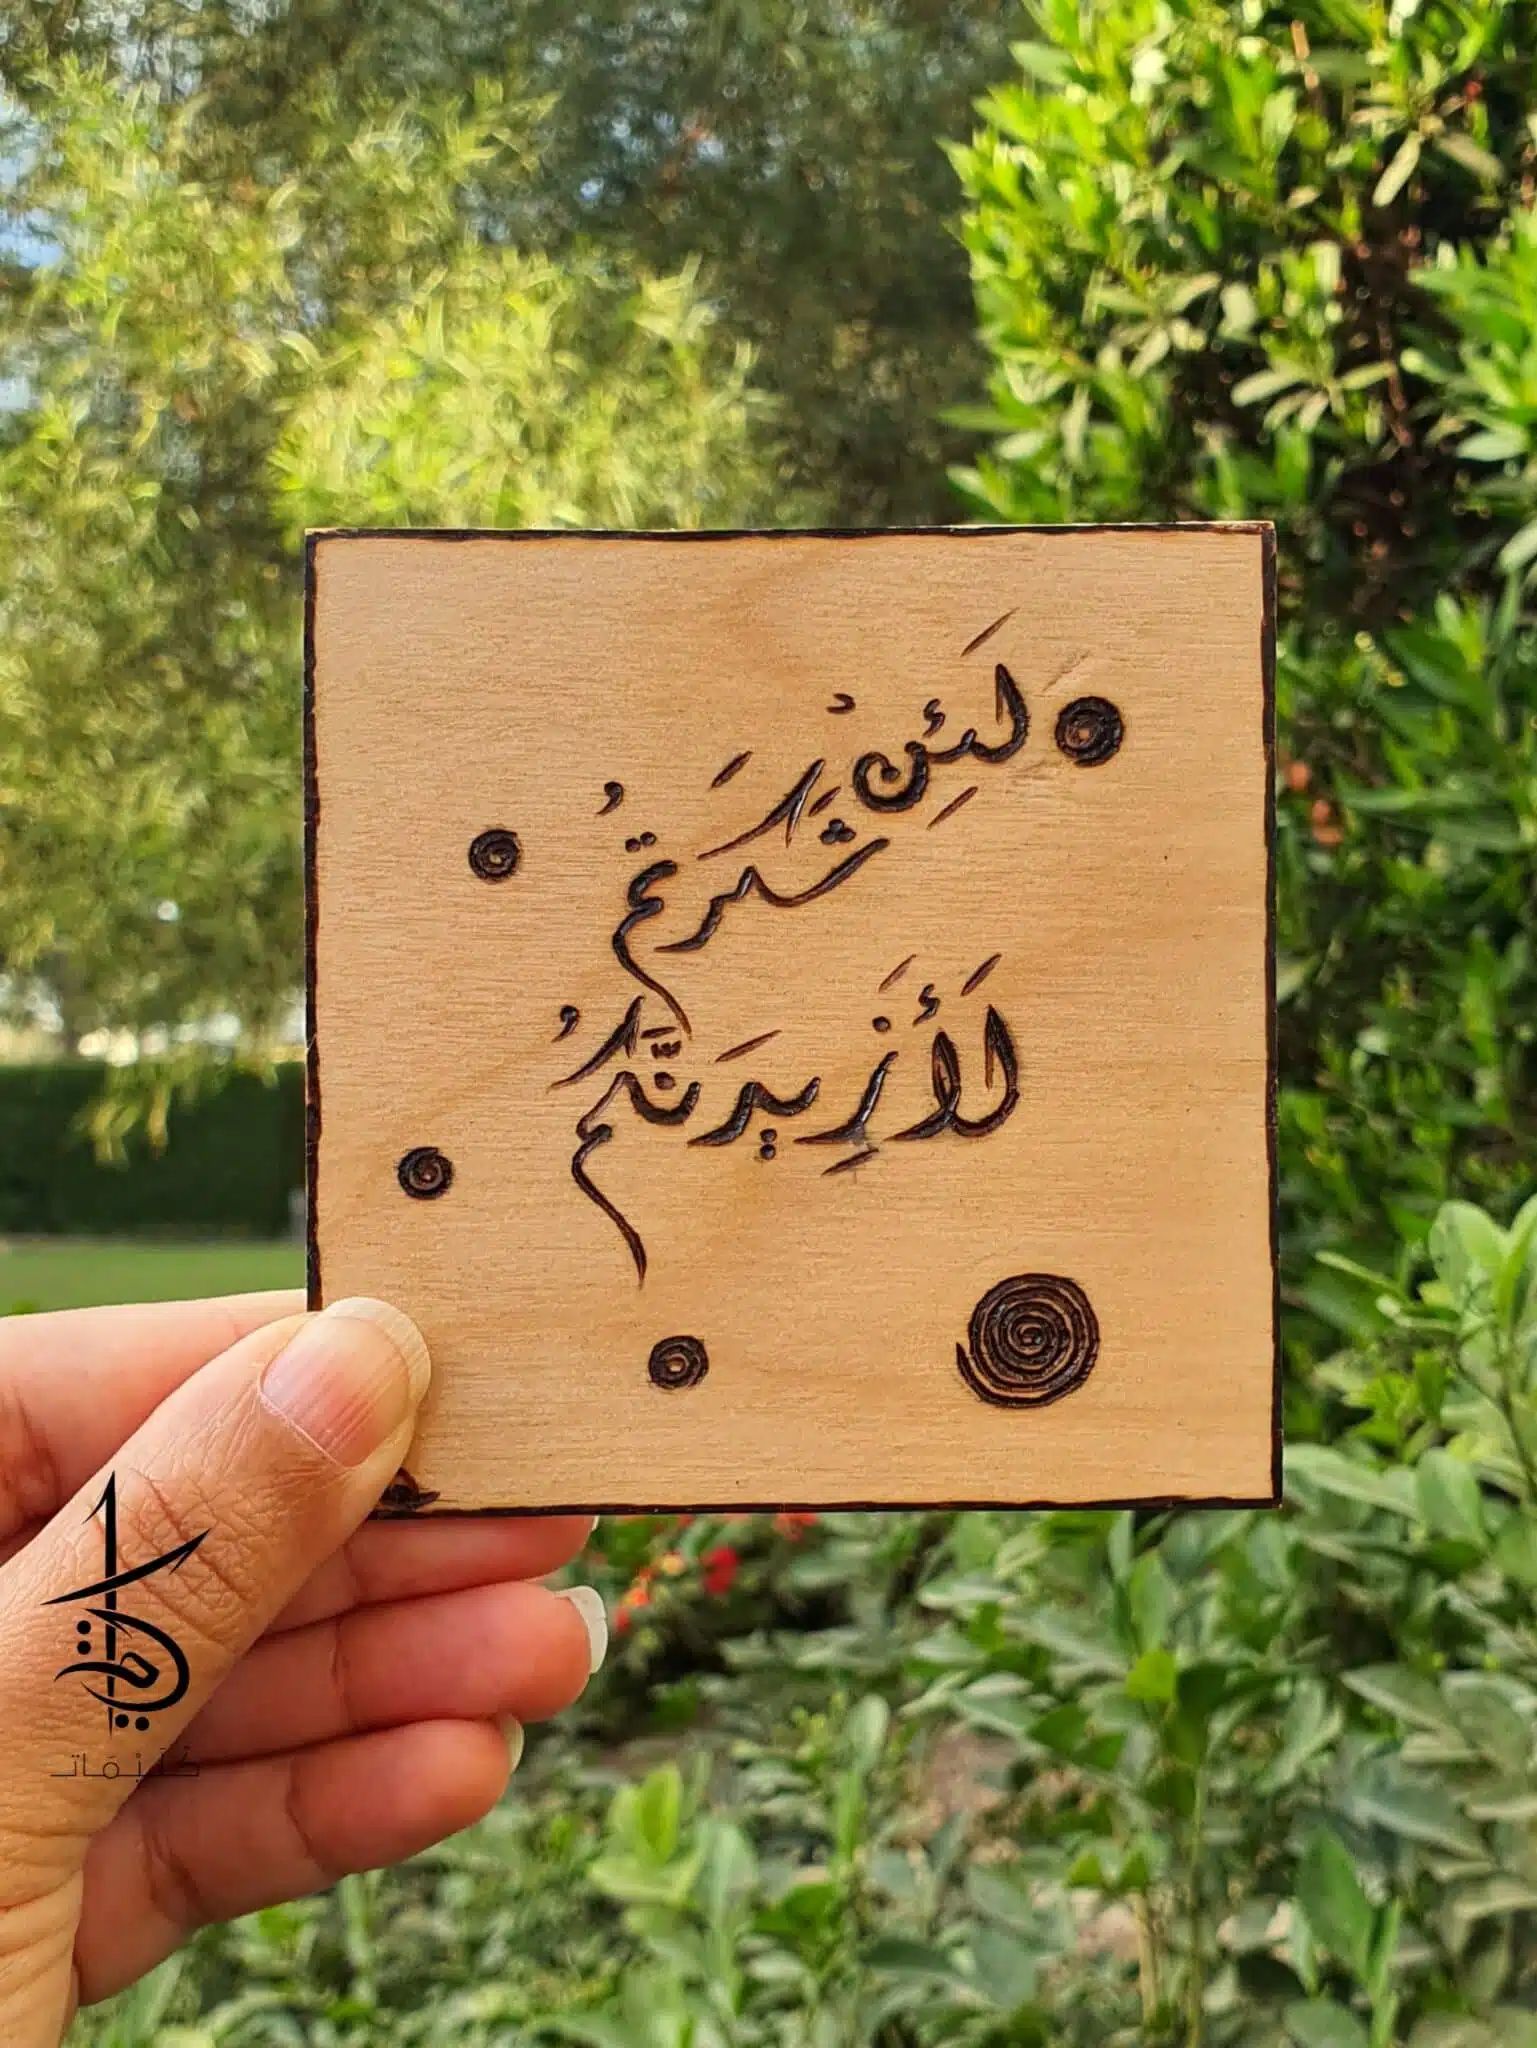 لَئِنْ شَكَرتمُ
لَأَزِيدَنَّكمُ
كَلَيْمَات